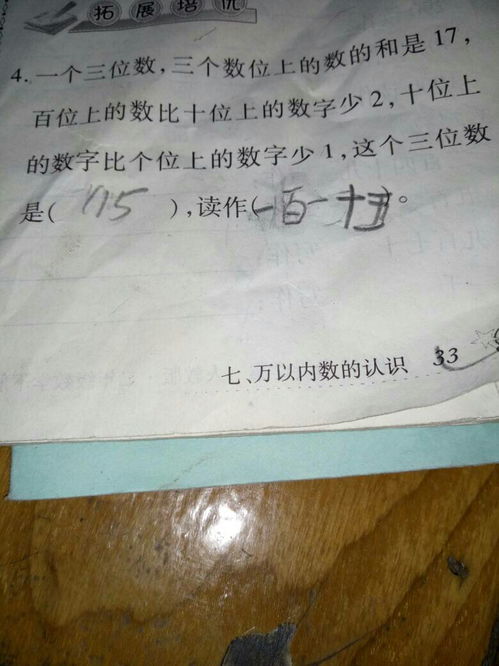 拓展培优
4. 一个三位数,三个数位上的数的和是17,
百位上的数比十位上的数字少2,十位上
的数字比个位上的数字少1,这个三位数
是( 115 ),读作(一百一十五)。
七、万以内数的认识 33